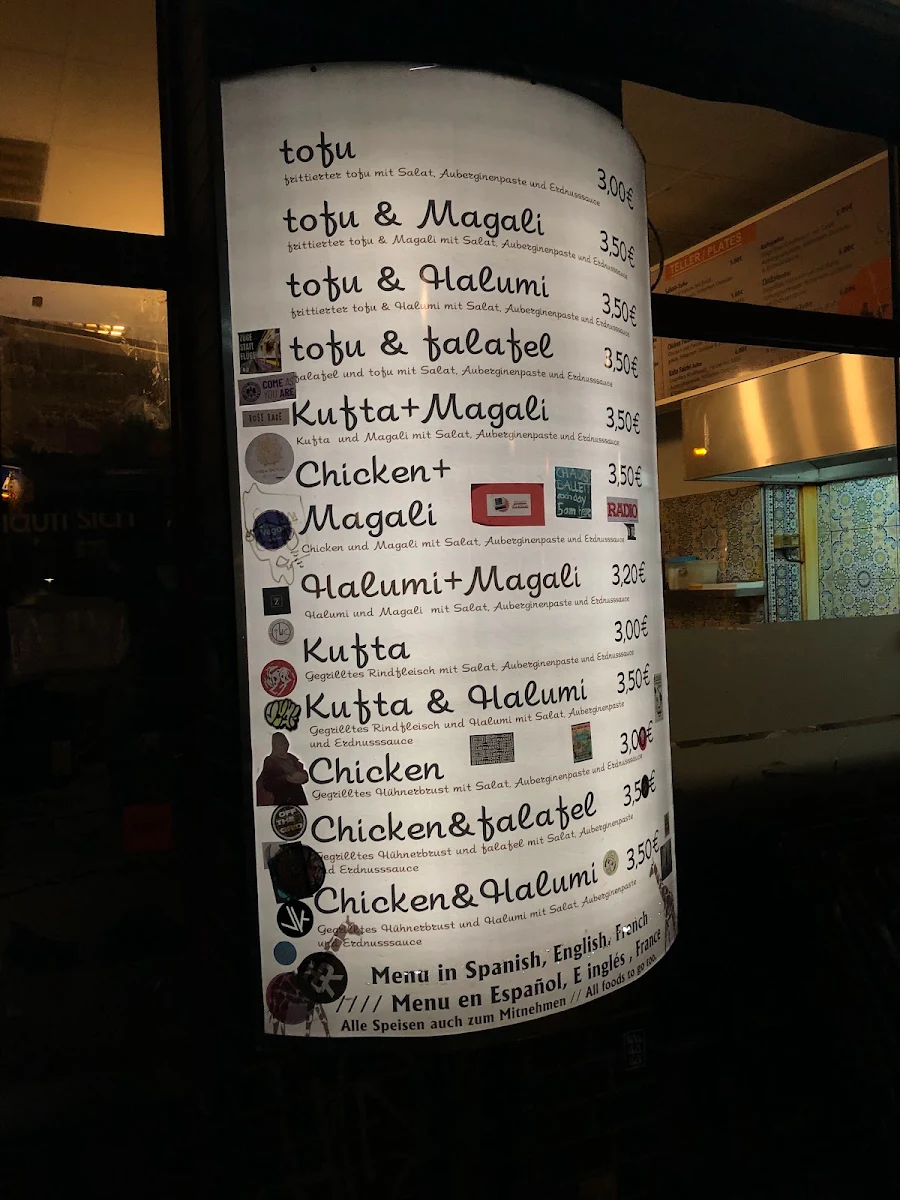 tofu
frittierter tofu mit Salat, Auberginenpaste und Erdnusssauce 3,00€
tofu & Magali
frittierter tofu & Magali mit Salat, Auberginenpaste und Erdnusssauce 3,50€
tofu & Halumi
frittierter tofu & Halumi mit Salat, Auberginenpaste und Erdnusssauce 3,50€
tofu & falafel 3,50€
falafel und tofu mit Salat, Auberginenpaste und Erdnusssauce
Kufta+Magali 3,50€
Kufta und Magali mit Salat, Auberginenpaste und Erdnusssauce
Chicken+ 3,50€
Magali
Chicken und Magali mit Salat, Auberginenpaste und Erdnusssauce
Halumi+Magali 3,20€
Halumi und Magali mit Salat, Auberginenpaste und Erdnusssauce
Kufta 3,00€
Gegrilltes Rindfleisch mit Salat, Auberginenpaste und Erdnusssauce
Kufta & Halumi 3,50€
Gegrilltes Rindfleisch und Halumi mit Salat, Auberginenpaste
und Erdnusssauce
Chicken 3,00€
Gegrilltes Hühnerbrust mit Salat, Auberginenpaste und Erdnusssauce
Chicken&falafel 3,50€
Gegrilltes Hühnerbrust und falafel mit Salat, Auberginenpaste
und Erdnusssauce
Chicken&Halumi 3,50€
Gegrilltes Hühnerbrust und Halumi mit Salat, Auberginenpaste
und Erdnusssauce
Menu in Spanish, English, French
//// Menu en Español, E inglés , France
Alle Speisen auch zum Mitnehmen // All foods to go too.
ZÜGE
STATT
FLÜGE
COME AS
YOU ARE
ROSE KADÉ
vego
OFF
THE
GRID
CHAOS
BALLET
each day
5am here
RADIO
TELLER / PLATES